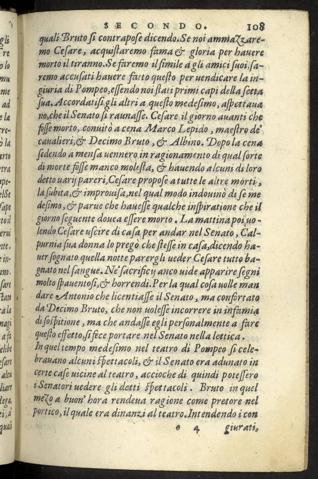 SECONDO. 108
quali Bruto si contrapose dicendo. Se noi ammazzare-
mo Cesare, acquistaremo fama & gloria per hauere
morto il tiranno. Se faremo il simile a gli amici suoi, sa-
remo accusati hauere fatto questo per uendicare la in-
giuria di Pompeo, essendo noi stati primi capi della setta
sua. Accordatisi gli altri a questo medesimo, aspettaua
no, che il Senato si raunasse. Cesare il giorno auanti che
fosse morto, conuitò a cena Marco Lepido, maestro de'
caualieri, & Decimo Bruto, & Albino. Dopo la cena
sedendo a mensa uennero in ragionamento di qual sorte
di morte fosse manco molesta, & hauendo alcuni di loro
detto uarij pareri, Cesare propose a tutte le altre morti,
la subita, & improuisa, nel qual modo indouinò di se me
desimo, & parue che hauesse qualche inspiratione che il
giorno seguente doueа essere morto. La mattina poi, uo-
lendo Cesare uscire di casa per andar nel Senato, Cal-
purnia sua donna lo pregò che stesse in casa, dicendo ha-
uer sognato quella notte parergli ueder Cesare tutto ba-
gnato nel sangue. Ne' sacrificij anco uide apparire segni
molto spauentosi, & horrendi. Per la qual cosa uolle man
dare Antonio che licentiasse il Senato, ma confortato
da Decimo Bruto, che non uolesse incorrere in infamia
di sospitione, ma che andasse egli personalmente a fare
questo effetto, si fece portare nel Senato nella lettica.
In quel tempo medesimo nel teatro di Pompeo si cele-
brauano alcuni spettacoli, & il Senato era adunato in
certe case uicine al teatro, accioche di quindi potessero
i Senatori uedere gli detti spettacoli. Bruto in quel
mezo a buon' hora rendeua ragione come pretore nel
portico, il quale era dinanzi al teatro. Intendendo i con
o 4 giurati,